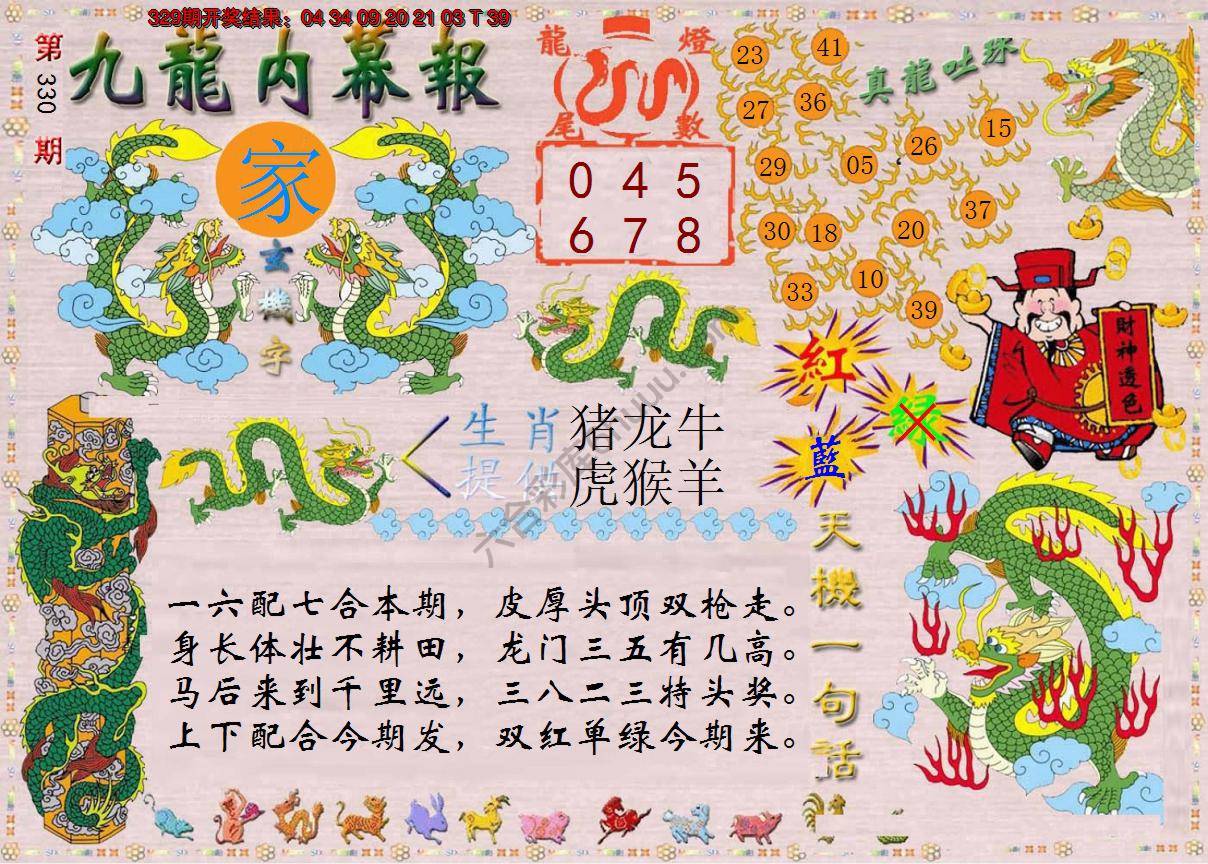 329期开奖结果：04 34 09 20 21 03 T 39
第330期
九龍内幕報
家
玄機字
龍燈
尾數
0 4 5
6 7 8
真龍吐珠
23
41
27
36
15
26
29
05
37
30
18
20
10
33
39
財神透色
紅
绿
藍
生肖
猪龙牛
提供
虎猴羊
天機一句話
一六配七合本期，皮厚头顶双枪走。
身长体壮不耕田，龙门三五有几高。
马后来到千里远，三八二三特头奖。
上下配合今期发，双红单绿今期来。